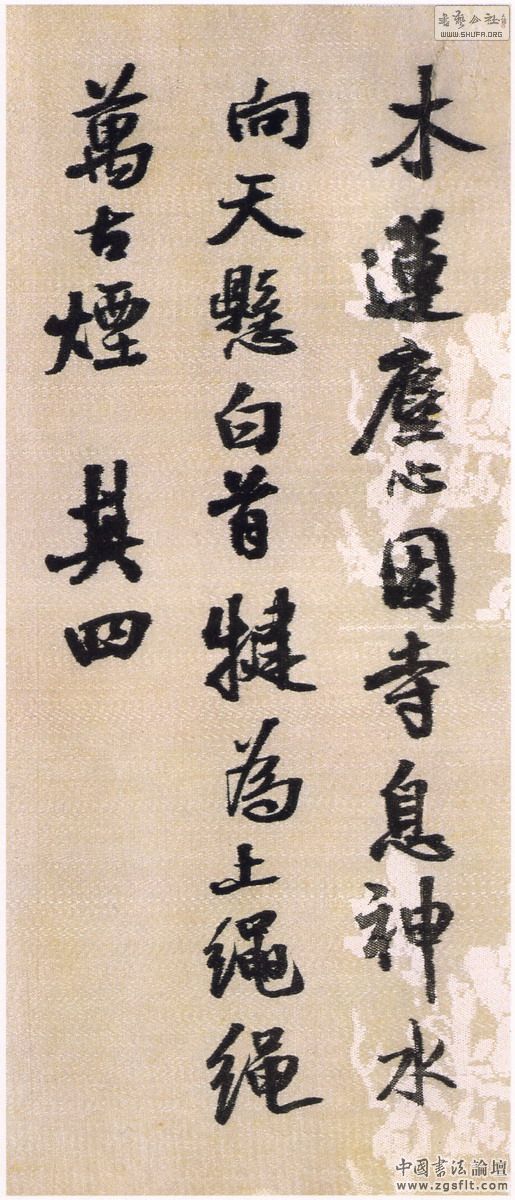 木蓮塵心因寺息神水
向天懸白首犍為土繩繩
萬古煙 其四
書藝公社
WWW.SHUFA.ORG
中國書法論壇
www.zgsflt.com